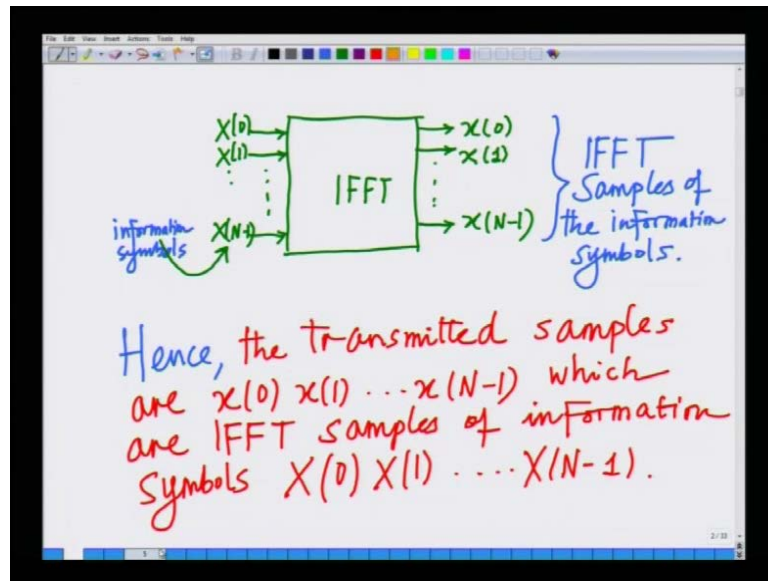 File Edit View Insert Actions Tools Help
X(0) x(0)
X(1) x(1)
IFFT
X(N-1) x(N-1)
information
symbols
IFFT
Samples of
the information
symbols.
Hence, the transmitted samples
are x(0) x(1) ... x(N-1) which
are IFFT samples of information
symbols X(0) X(1) .... X(N-1).
2/33
5